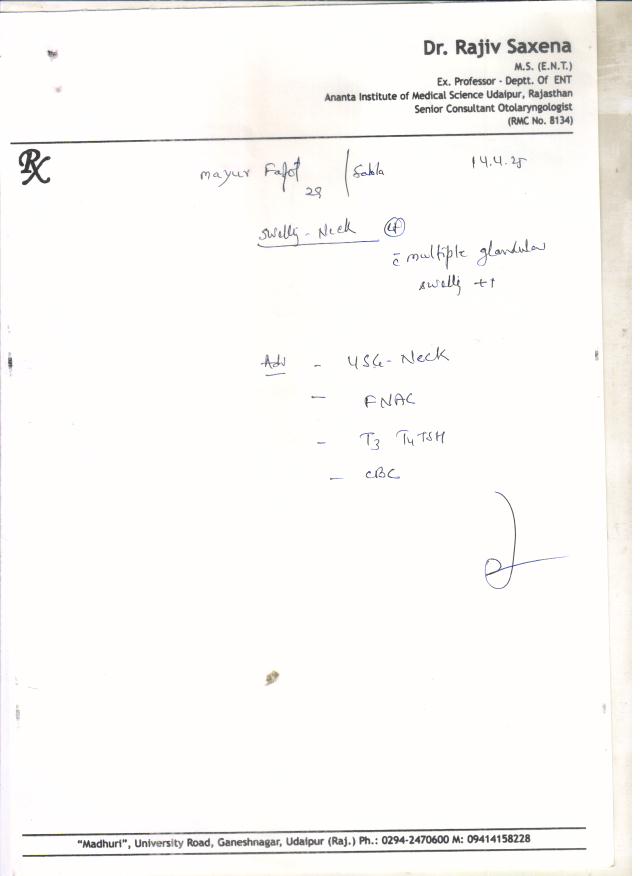 Dr. Rajiv Saxena
M.S. (E.N.T.)
Ex. Professor - Deptt. Of ENT
Ananta Institute of Medical Science Udaipur, Rajasthan
Senior Consultant Otolaryngologist
(RMC No. 8134)
Rx
mayur 14.4.25
29
Neck
c̄ multiple glandular
++
Adv - USG - Neck
- FNAC
- T3 T4 TSH
- CBC
"Madhuri", University Road, Ganeshnagar, Udaipur (Raj.) Ph.: 0294-2470600 M: 09414158228